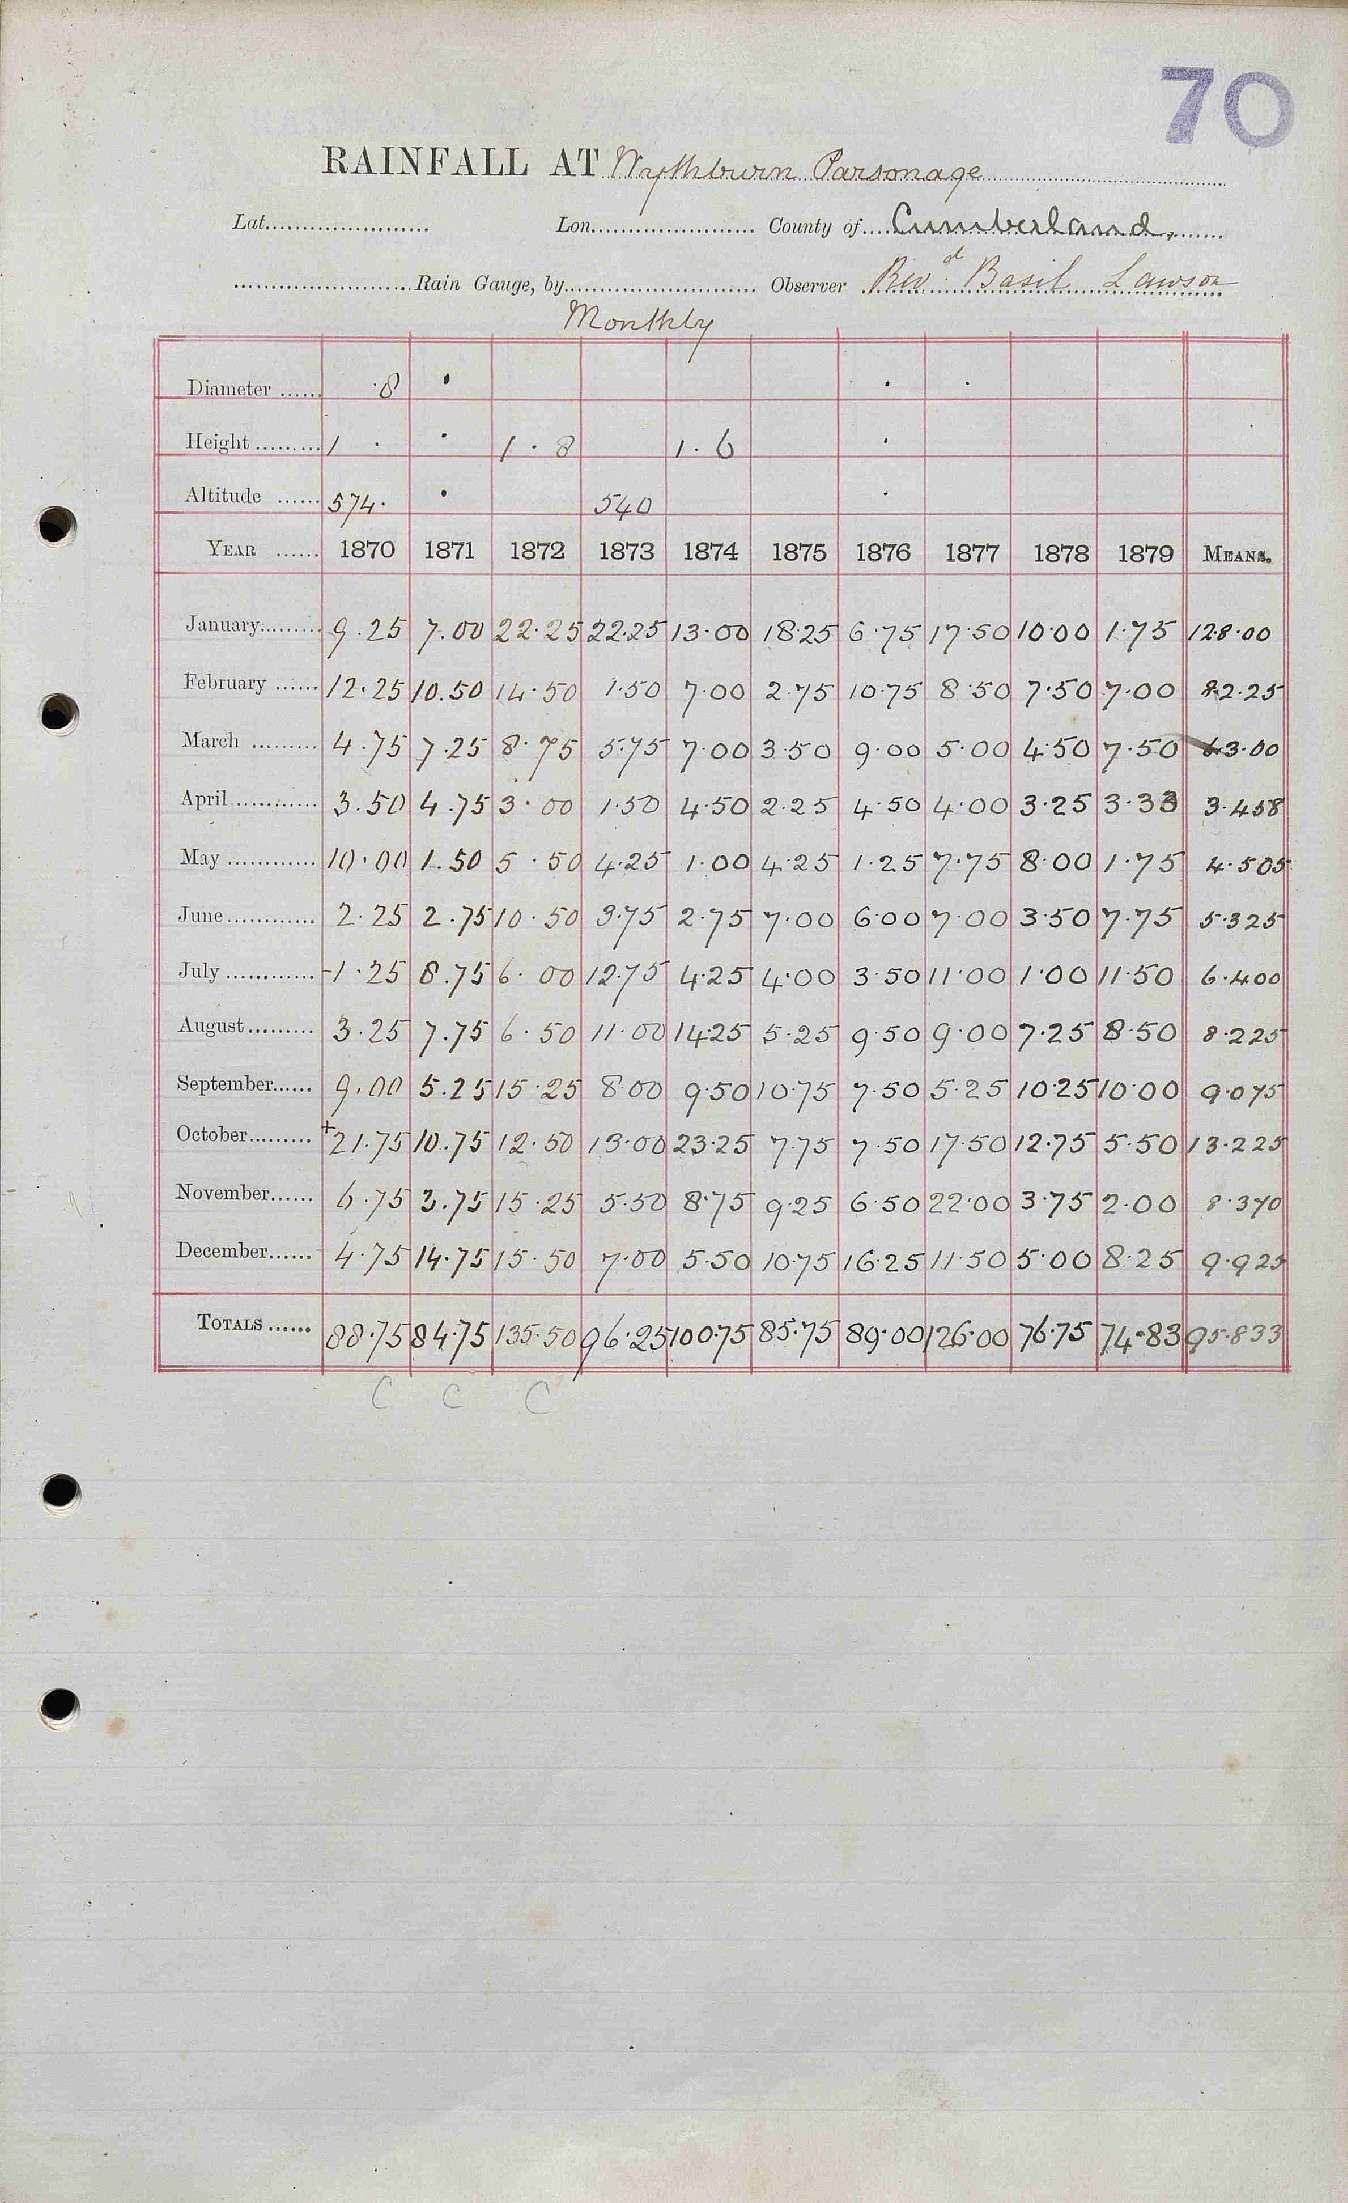 70
RAINFALL AT Wythburn Parsonage
Lat. Lon. County of Cumberland.
Rain Gauge, by Observer Revd Basil Lawson
Monthly
Diameter ...... ·8 ·  · ·
Height ......... 1 · · 1·8 1·6 ·
Altitude ...... 574· · 540 ·
YEAR ...... 1870 1871 1872 1873 1874 1875 1876 1877 1878 1879 MEANS.
January......... 9.25 7.00 22.25 22.25 13.00 18.25 6.75 17.50 10.00 1.75 128.00
February ...... 12.25 10.50 14.50 1.50 7.00 2.75 10.75 8.50 7.50 7.00 82.25
March ......... 4.75 7.25 8.75 5.75 7.00 3.50 9.00 5.00 4.50 7.50 63.00
April............ 3.50 4.75 3.00 1.50 4.50 2.25 4.50 4.00 3.25 3.33 3.458
May ............ 10.00 1.50 5.50 4.25 1.00 4.25 1.25 7.75 8.00 1.75 4.505
June............ 2.25 2.75 10.50 3.75 2.75 7.00 6.00 7.00 3.50 7.75 5.325
July ............ -1.25 8.75 6.00 12.75 4.25 4.00 3.50 11.00 1.00 11.50 6.400
August......... 3.25 7.75 6.50 11.00 14.25 5.25 9.50 9.00 7.25 8.50 8.225
September...... 9.00 5.25 15.25 8.00 9.50 10.75 7.50 5.25 10.25 10.00 9.075
October......... +21.75 10.75 12.50 13.00 23.25 7.75 7.50 17.50 12.75 5.50 13.225
November...... 6.75 3.75 15.25 5.50 8.75 9.25 6.50 22.00 3.75 2.00 8.370
December...... 4.75 14.75 15.50 7.00 5.50 10.75 16.25 11.50 5.00 8.25 9.925
TOTALS ...... 88.75 84.75 135.50 96.25 100.75 85.75 89.00 126.00 76.75 74.83 95.833
C C C